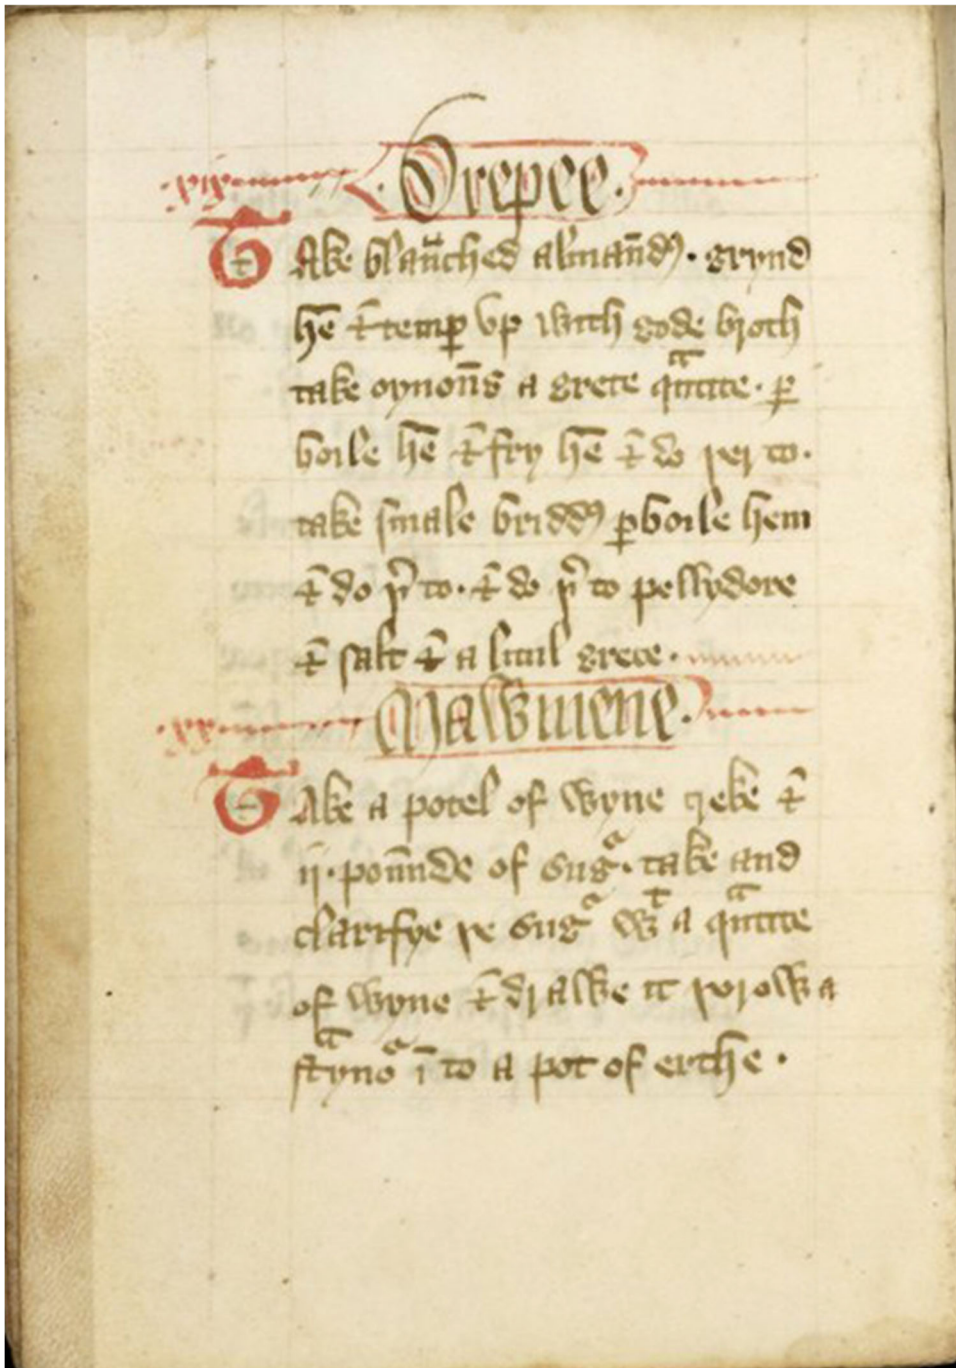 .xix. Drepee.
TAke blaūched almaūdꝭ. grynd
hē ⁊ temꝑ vp with gode broth
take oynoūs a grete qᵃntite. ꝑ
boile hē ⁊ fry hē ⁊ do þer to.
take smale briddꝭ ꝑboile hem
⁊ do þʳ to. ⁊ do þʳ to pellydore
⁊ salt ⁊ a litul grece.
.xx. Mawmene.
TAke a potel of wyne greke ⁊
ii. poūnde of sugᵃ. take and
clarifye þe sugᵃ wᵗ a qᵃntite
of wyne ⁊ drawe it þorow a
stᵃynoᵃ ī to a pot of erthe.